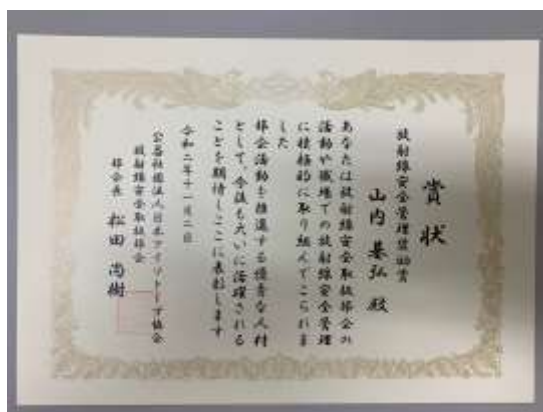 賞状
放射線安全管理奨励賞
山内基弘殿
あなたは放射線安全取扱部会の
活動や職場での放射線安全管理
に積極的に取り組んでこられま
した
部会活動を推進する優秀な人材
として、今後も大いに活躍される
ことを期待しここに表彰します
令和二年十一月二日
公益社団法人日本アイソトープ協会
放射線安全取扱部会
部会長 松田尚樹